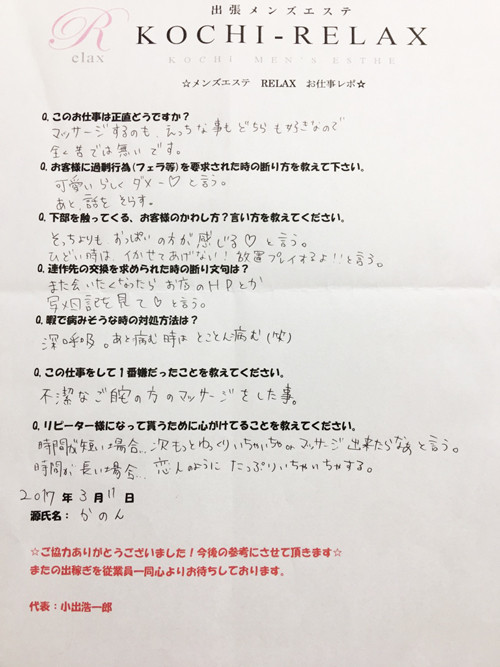 出張メンズエステ
R
elax
KOCHI-RELAX
KOCHI MEN'S ESTHE
☆メンズエステ RELAX お仕事レポ☆
Q. このお仕事は正直どうですか？
マッサージするのも、えっちな事もどちらも好きなので
全く苦では無いです。
Q. お客様に過剰行為(フェラ等)を要求された時の断り方を教えて下さい。
可愛いらしくダメー♡と言う。
あと、話をそらす。
Q. 下部を触ってくる、お客様のかわし方？言い方を教えてください。
そっちよりも、おっぱいの方が感じる♡と言う。
ひどい時は、イかせてあげない！放置プレイするよ！！と言う。
Q. 連作先の交換を求められた時の断り文句は？
また会いたくなったらお店のHPとか
写メ日記を見て♡と言う。
Q. 暇で病みそうな時の対処方法は？
深呼吸。あと病む時はとことん病む(笑)
Q. この仕事をして１番嫌だったことを教えてください。
不潔なご自宅の方のマッサージをした事。
Q. リピーター様になって貰うために心がけてることを教えてください。
時間が短い場合…次もっとゆっくりいちゃいちゃorマッサージ出来たらなぁと言う。
時間が長い場合…恋人のようにたっぷりいちゃいちゃする。
2017 年 3 月 11 日
源氏名： かのん
☆ご協力ありがとうございました！今後の参考にさせて頂きます☆
またの出稼ぎを従業員一同心よりお待ちしております。
代表：小出浩一郎